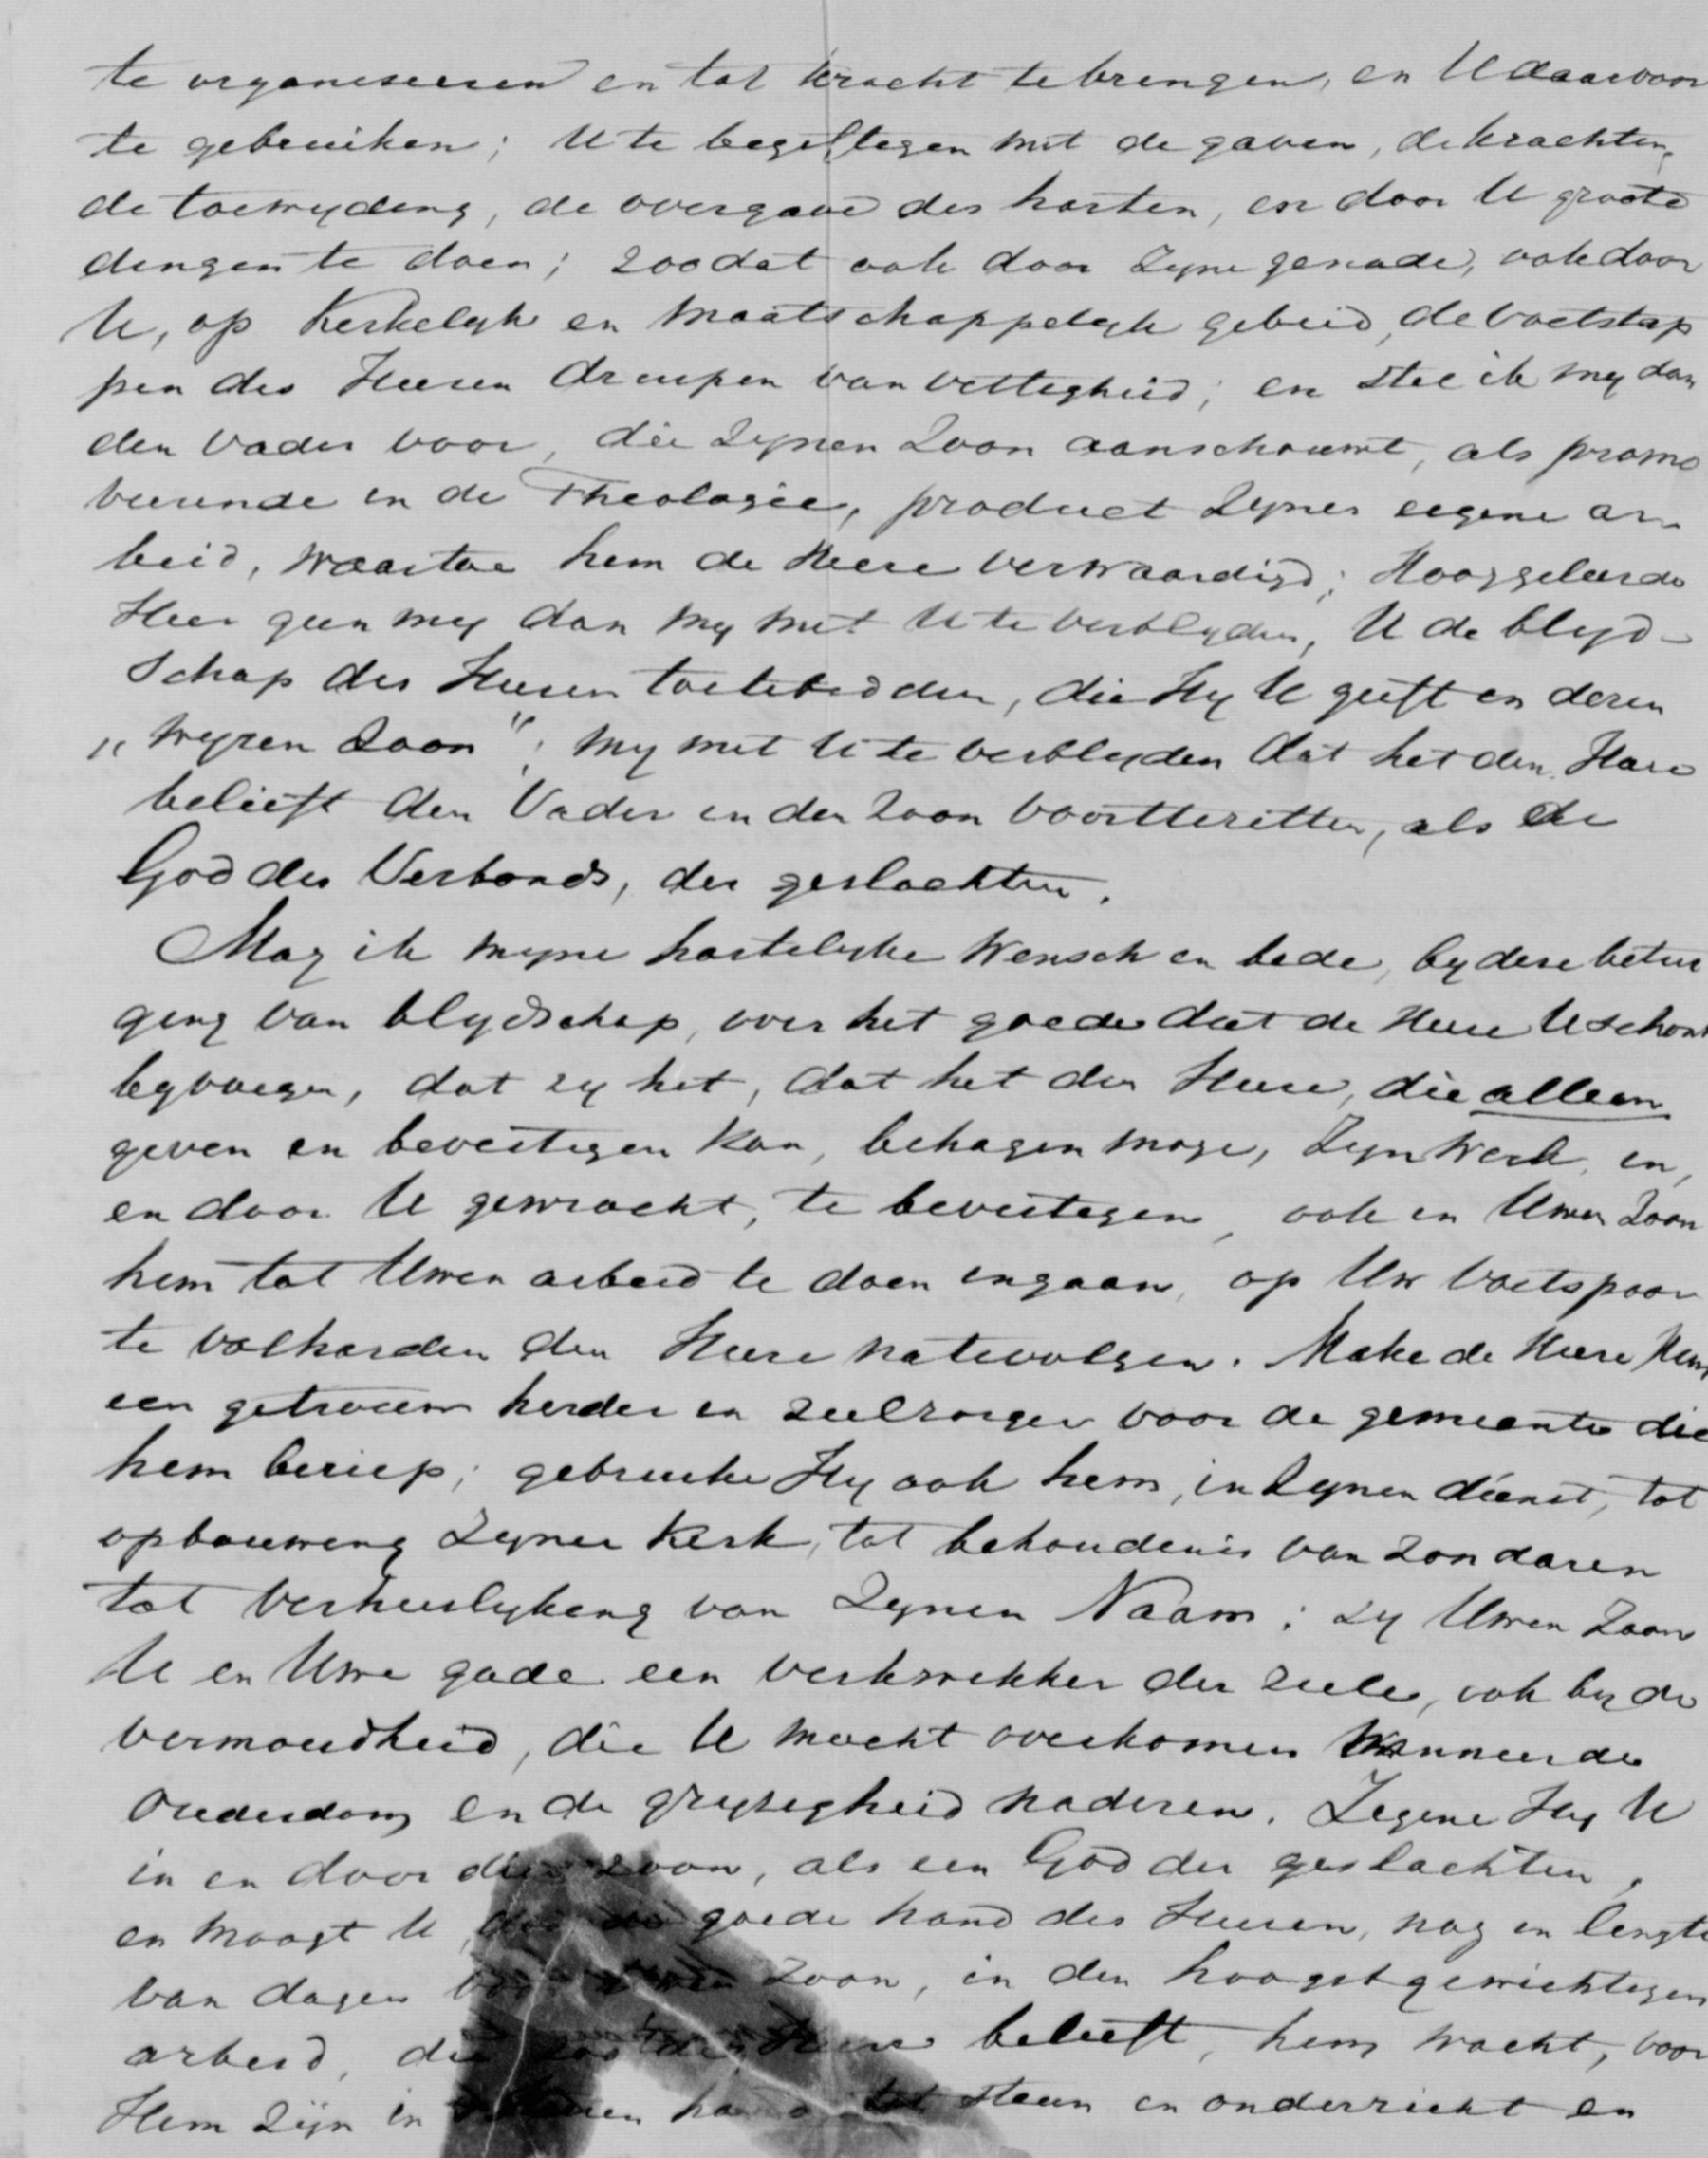 te organiseeren en tot kracht te brengen, en U daarvoor
te gebruiken; U te begiftegen met de gaven, de krachten,
de toewyding, de overgave des harten, en door U groote
dingen te doen; zoodat ook door Zyne genade, ook door
U, op Kerkelyk en Maatschappelyk gebied, de voetstap
pen des Heeren druipen van vettigheid; en stel ik my dan
den Vader voor, die Zynen Zoon aanschouwt, als promo
veerende in de Theologie, product Zyner eigene ar-
beid, waartoe hem de Heere verwaardigd; Hooggeleerde
Heer gun my dan my met U te verblyden, U de blyd-
schap des Heeren toetebidden, die Hy U geeft en deren
„wyzen Zoon"; my met U te verblyden dat het den Heere
belieft den Vader in den Zoon voorttezetten, als de
God des Verbonds, der geslachten.
Mag ik myne hartelyke Wensch en bede, by deze betui
ging van blydschap, over het goede dat de Heere U schonk
byvoegen, dat zy het, dat het den Heere, die alleen
geven en bevestigen kan, behagen moge, Zyn Werk, in,
en door U gewracht, te bevestigen, ook in Uwen Zoon
hem tot Uwen arbeid te doen ingaan, op Uw voetspoor
te volharden den Heere natevolgen. Make de Heere Hem
een getrouw herder en zielzorger voor de gemeente die
hem beriep; gebruike Hy ook hem, in Zynen dienst, tot
opbouwing Zyner Kerk, tot behoudenis van zondaren
tot verheerlyking van Zynen Naam; zy Uwen Zoon
U en Uwe gade een verkwikker der ziele, ook by de
vermoeidheid, die U mocht overkomen Wanneer de
ouderdom en de gryzigheid naderen. Zegene Hy U
in en door dien zoon, als een God der geslachten,
en moogt U, de goede hand des Heeren, nog in lengte
van dagen Zoon, in den hoogst gewichtigen
arbeid, die zoo het den Heere belieft, hem wacht, voor
Hem zijn in tot steun en onderricht en